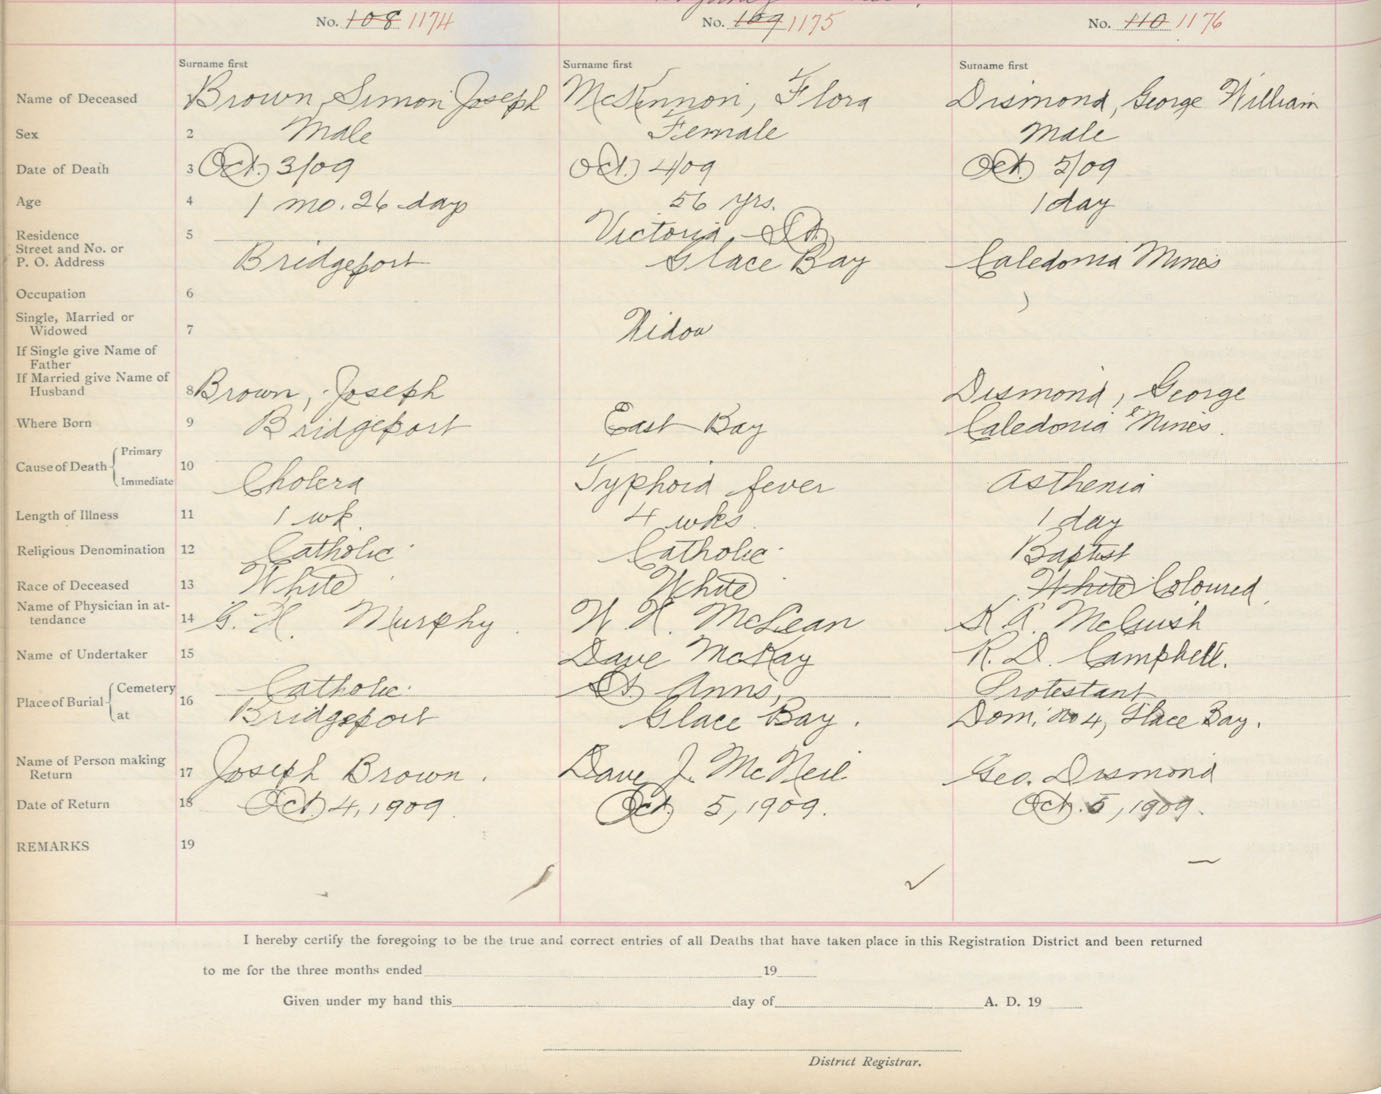 No. 108 1174 No. 109 1175 No. 110 1176
Surname first Surname first Surname first
Name of Deceased 1 Brown, Simon Joseph McKennon, Flora Dismond, George William
Sex 2 Male Female Male
Date of Death 3 Oct. 3/09 Oct. 4/09 Oct. 5/09
Age 4 1 mo. 26 days 56 yrs. 1 day
Residence 5 Victoria St.
Street and No. or
P. O. Address Bridgeport Glace Bay Caledonia Mines
Occupation 6
Single, Married or
Widowed 7 Widow
If Single give Name of
Father
If Married give Name of
Husband 8 Brown, Joseph Dismond, George
Where Born 9 Bridgeport East Bay Caledonia Mines.
Cause of Death { Primary 10
Immediate Cholera Typhoid fever Asthenia
Length of Illness 11 1 wk. 4 wks 1 day
Religious Denomination 12 Catholic Catholic Baptist
Race of Deceased 13 White White White Coloured.
Name of Physician in at-
tendance 14 G. H. Murphy. W. H. McLean K. A. McCuish
Name of Undertaker 15 Dave McKay R. D. Campbell.
Place of Burial { Cemetery 16 Catholic St. Anns, Protestant
at Bridgeport Glace Bay. Dom. No 4, Glace Bay.
Name of Person making
Return 17 Joseph Brown. Dave J. McNeil Geo. Dismond
Date of Return 18 Oct. 4, 1909. Oct. 5, 1909. Oct. 5, 1909.
REMARKS 19
I hereby certify the foregoing to be the true and correct entries of all Deaths that have taken place in this Registration District and been returned
to me for the three months ended 19
Given under my hand this day of A. D. 19
District Registrar.